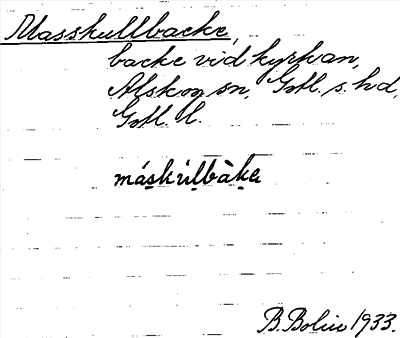 Masskullbacke,
backe vid kyrkan,
Alskog sn, Gotl. s. hd,
Gotl. l.
máskúlbàke
B. Bolin 1933.